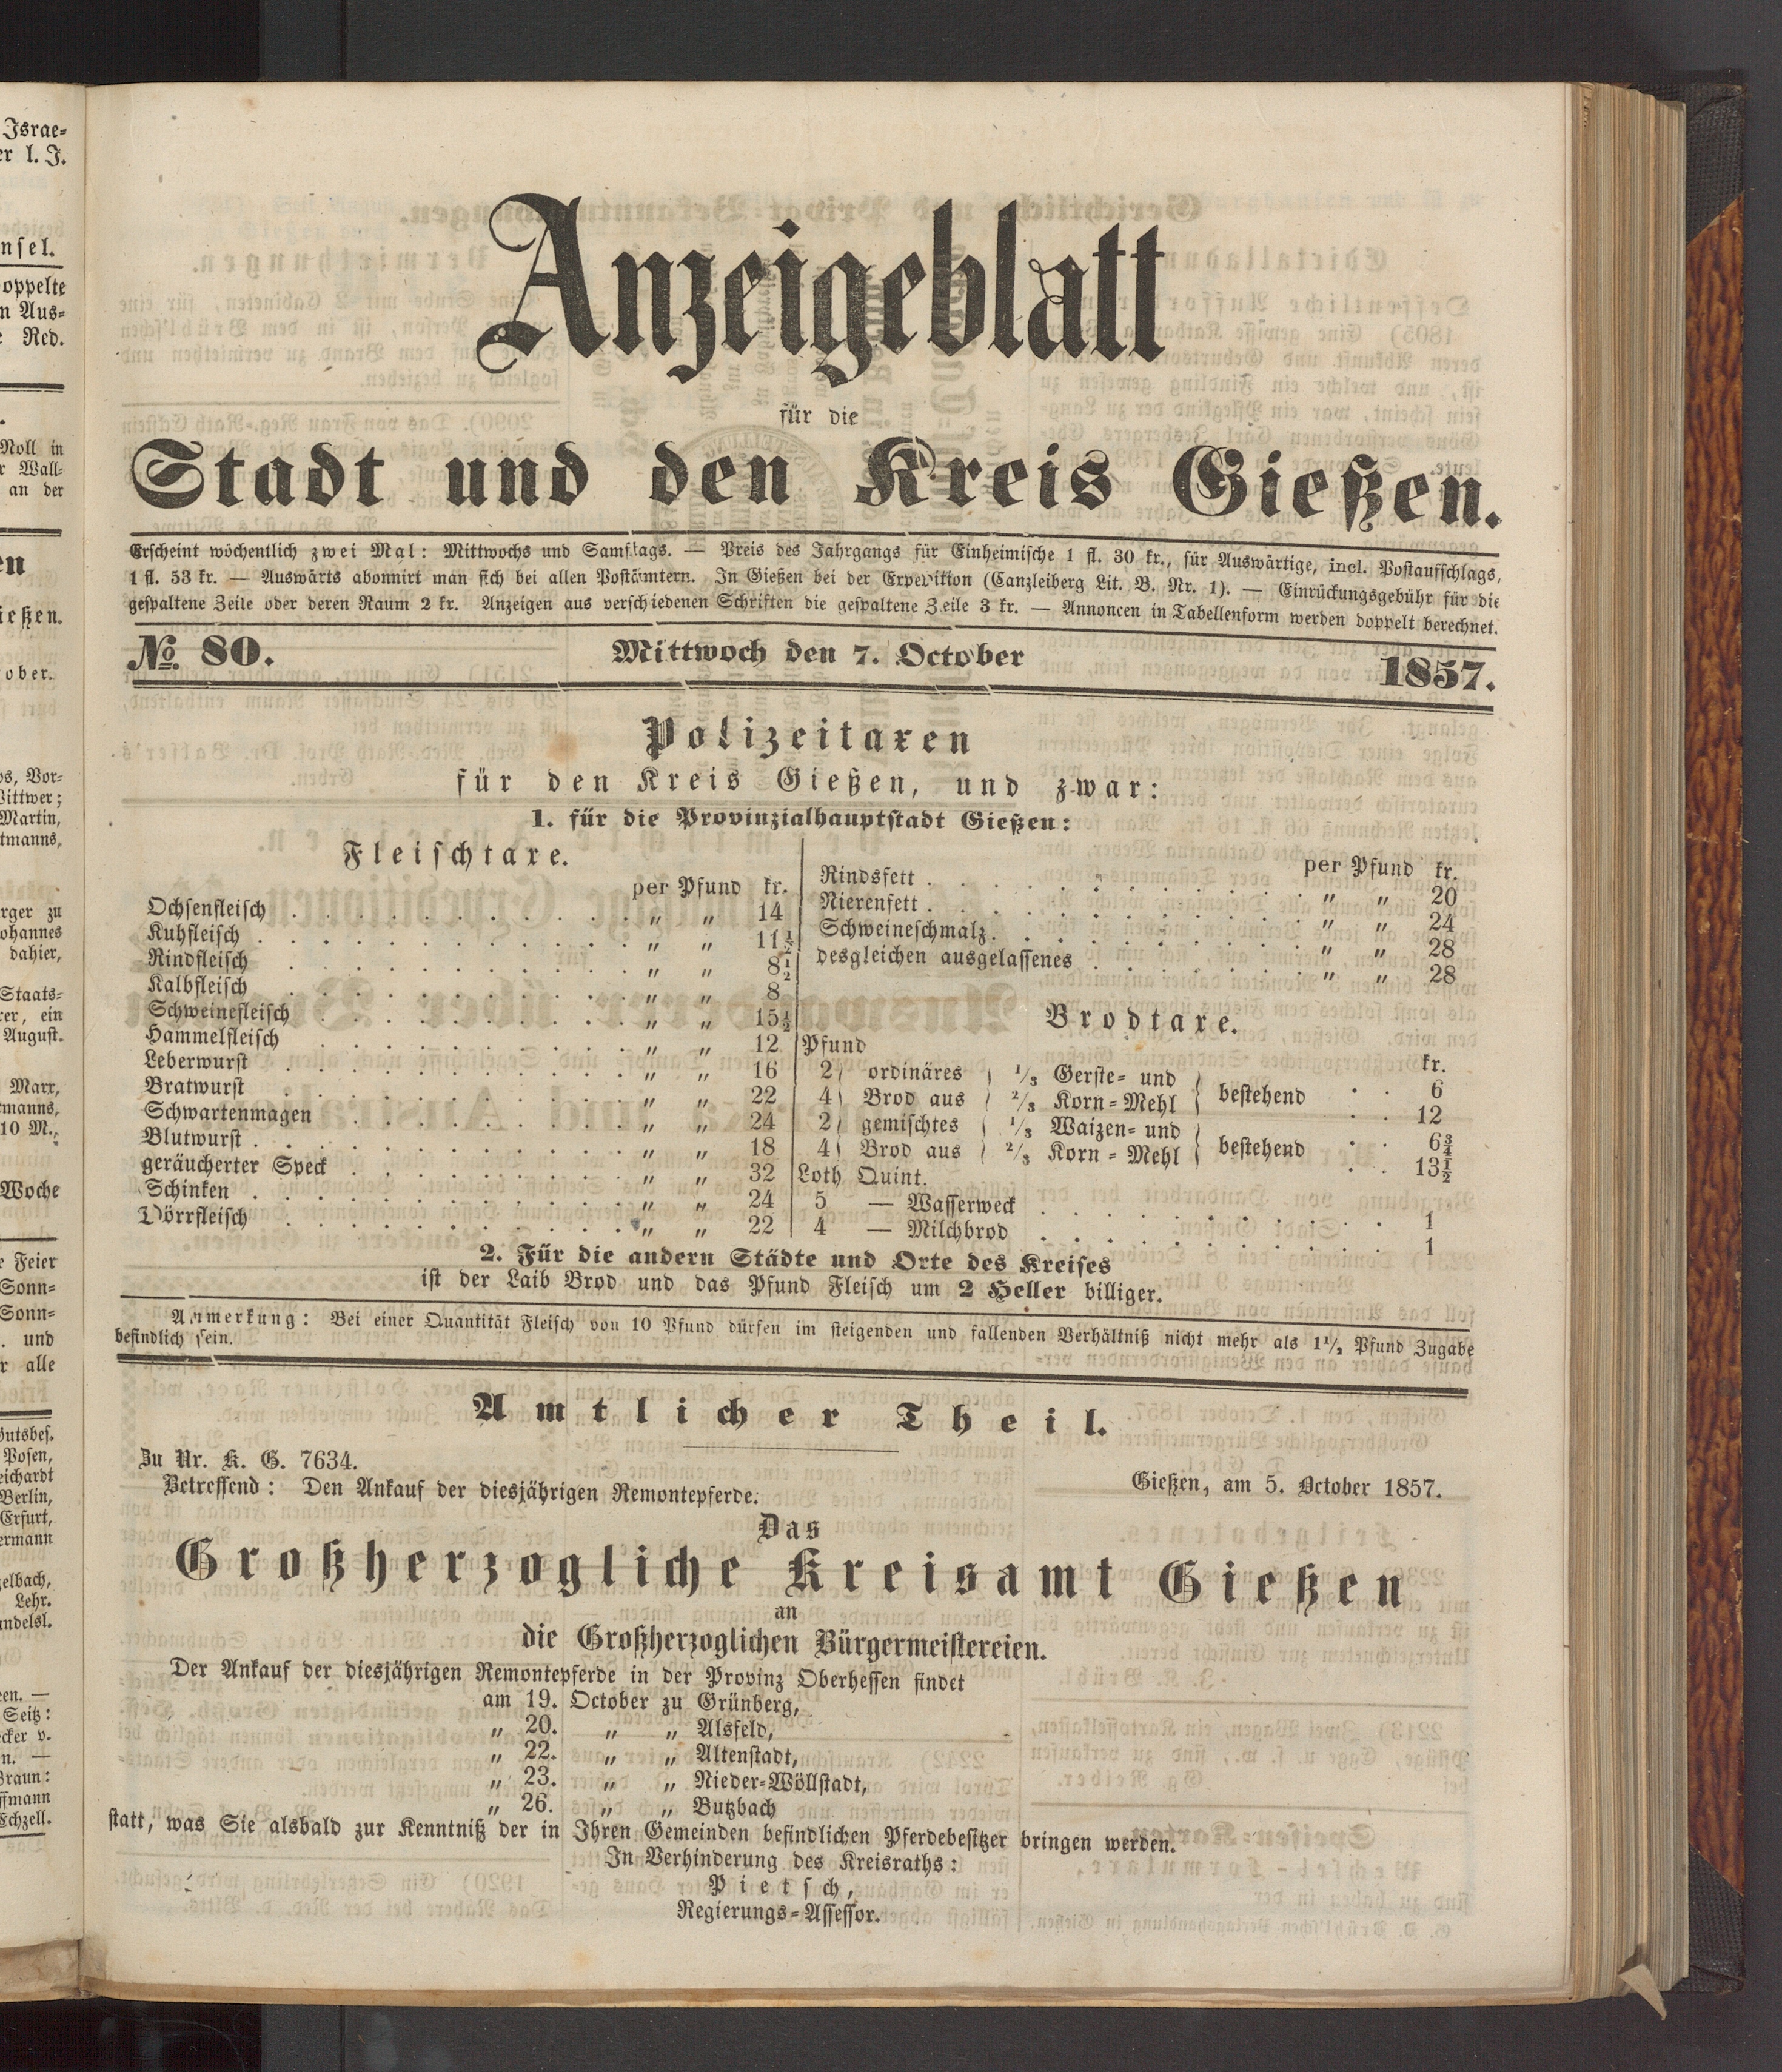 Anzeigeblatt
für die
Stadt und den Kreis Gießen.
Erscheint wöchentlich zwei Mal: Mittwochs und Samstags. — Preis des Jahrgangs für Einheimische 1 fl. 30 kr., für Auswärtige, incl. Postaufschlags,
1 fl. 53 kr. — Auswärts abonnirt man sich bei allen Postämtern. In Gießen bei der Expedition (Canzleiberg Lit. B. Nr. 1). — Einrückungsgebühr für die
gespaltene Zeile oder deren Raum 2 kr. Anzeigen aus verschiedenen Schriften die gespaltene Zeile 3 kr. — Annoncen in Tabellenform werden doppelt berechnet.
No. 80. Mittwoch den 7. October 1857.
Polizeitaxen
für den Kreis Gießen, und zwar:
1. für die Provinzialhauptstadt Gießen:
Fleischtaxe.
per Pfund kr.
Ochsenfleisch . . . . . . . . . . „ „ 14
Kuhfleisch . . . . . . . . . . „ „ 11½
Rindfleisch . . . . . . . . . . „ „ 8½
Kalbfleisch . . . . . . . . . . „ „ 8
Schweinefleisch . . . . . . . . . „ „ 15½
Hammelfleisch . . . . . . . . . „ „ 12
Leberwurst . . . . . . . . . . „ „ 16
Bratwurst . . . . . . . . . . „ „ 22
Schwartenmagen . . . . . . . . „ „ 24
Blutwurst . . . . . . . . . . „ „ 18
geräucherter Speck . . . . . . . . „ „ 32
Schinken . . . . . . . . . . „ „ 24
Dörrfleisch . . . . . . . . . . „ „ 22
per Pfund kr.
Rindsfett . . . . . . . . . . „ „ 20
Nierenfett . . . . . . . . . . „ „ 24
Schweineschmalz . . . . . . . . . „ „ 28
desgleichen ausgelassenes . . . . . . „ „ 28
Brodtaxe.
Pfund kr.
2 ordinäres 1/3 Gerste- und bestehend . . 6
4 Brod aus 2/3 Korn-Mehl . . 12
2 gemischtes 1/3 Waizen- und bestehend . . 6¾
4 Brod aus 2/3 Korn-Mehl . . 13½
Loth Quint.
5 — Wasserweck . . . . . . . . . 1
4 — Milchbrod . . . . . . . . . 1
2. Für die andern Städte und Orte des Kreises
ist der Laib Brod und das Pfund Fleisch um 2 Heller billiger.
Anmerkung: Bei einer Quantität Fleisch von 10 Pfund dürfen im steigenden und fallenden Verhältniß nicht mehr als 1½ Pfund Zugabe
befindlich sein.
Amtlicher Theil.
Zu Nr. K. G. 7634.
Gießen, am 5. October 1857.
Betreffend: Den Ankauf der diesjährigen Remontepferde.
Das
Großherzogliche Kreisamt Gießen
an
die Großherzoglichen Bürgermeistereien.
Der Ankauf der diesjährigen Remontepferde in der Provinz Oberhessen findet
am 19. October zu Grünberg,
„ 20. „ „ Alsfeld,
„ 22. „ „ Altenstadt,
„ 23. „ „ Nieder-Wöllstadt,
„ 26. „ „ Butzbach
statt, was Sie alsbald zur Kenntniß der in Ihren Gemeinden befindlichen Pferdebesitzer bringen werden.
In Verhinderung des Kreisraths:
Pietsch,
Regierungs-Assessor.